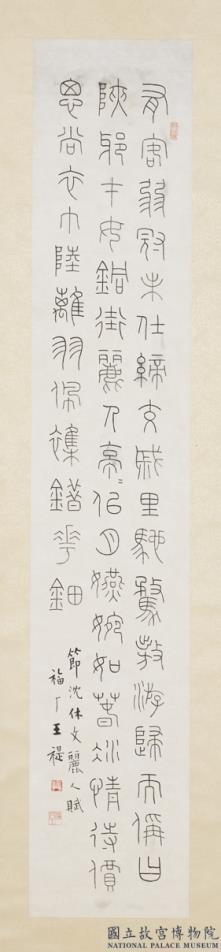 有客弱冠未仕締交戚里馳騖敖游歸而稱曰
陜邪才女銅街麗人亭〻佀月嬿婉如萅冰情待價
思尚衣巾陸離羽佩襍錯華鈿
節沈休文麗人賦
福厂王禔
國立故宮博物院
NATIONAL PALACE MUSEUM